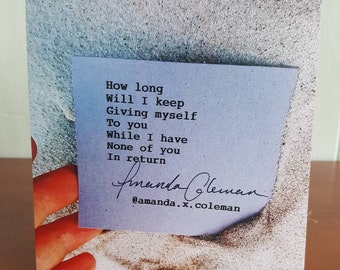 How long
Will I keep
Giving myself
To you
While I have
None of you
In return
Amanda Coleman
@amanda.x.coleman